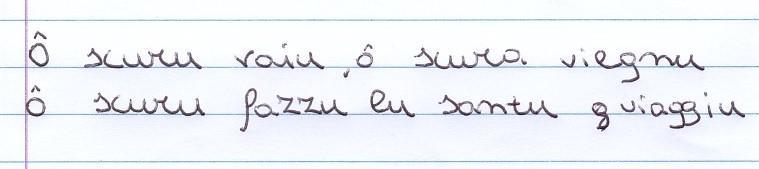 Ô scuru vaiu, ô scura viegnu
ô scuru fazzu lu santu gviaggiu